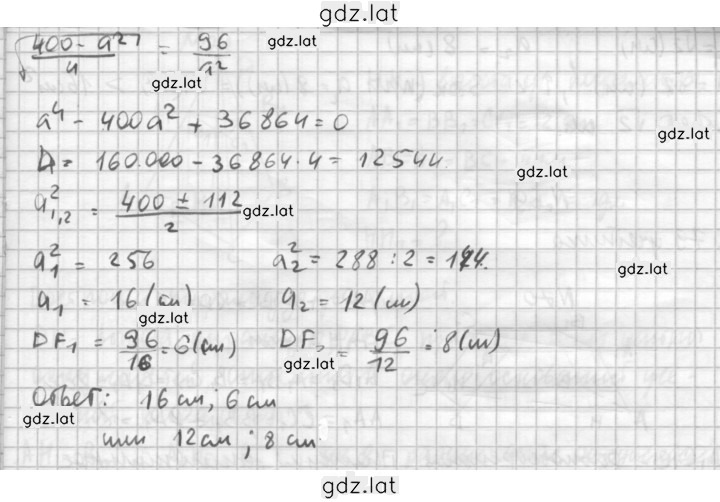 gdz.lat
√(400 - a²)/4 = 96/a² gdz.lat
gdz.lat
a⁴ - 400a² + 36864 = 0
gdz.lat
D = 160.000 - 36864·4 = 12544.
gdz.lat
a²₁,₂ = (400 ± 112)/2
gdz.lat
a₁² = 256 a₂² = 288 : 2 = 144.
gdz.lat
a₁ = 16 (см) a₂ = 12 (см)
gdz.lat
DF₁ = 96/16 = 6 (см) DF₂ = 96/12 = 8 (см)
gdz.lat
Ответ: 16 см; 6 см
gdz.lat
или 12 см; 8 см
gdz.lat